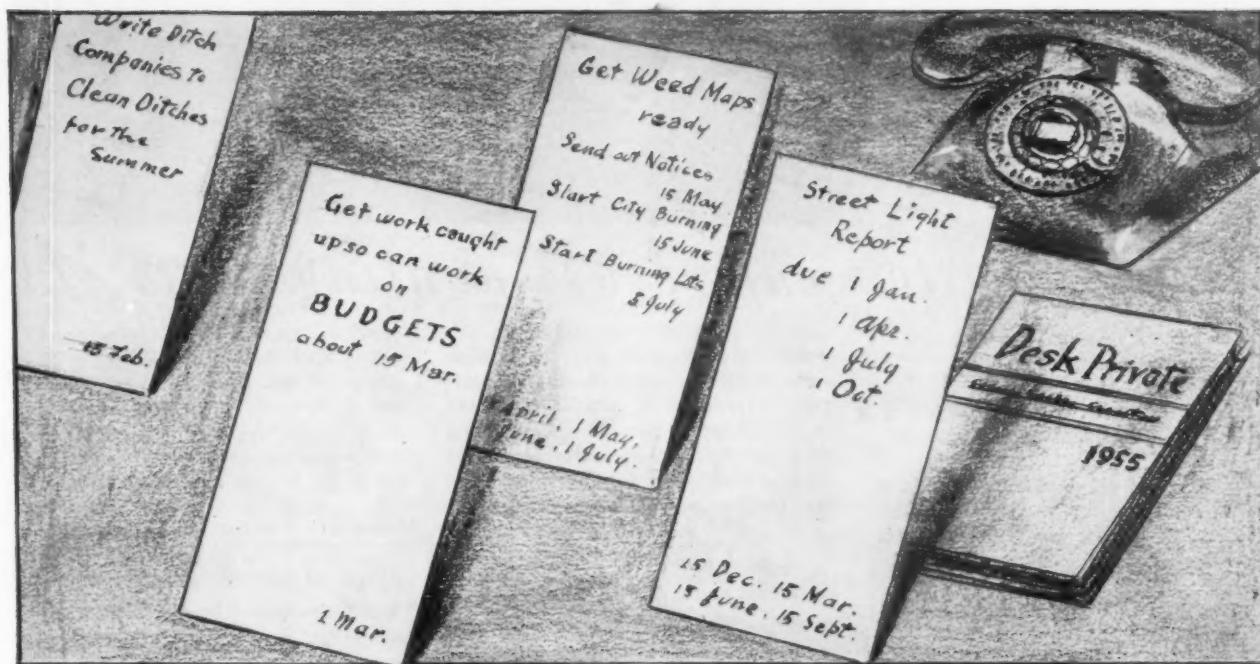 Write Ditch
Companies to
Clean Ditches
for the
Summer
15 Feb.
Get work caught
up so can work
on
BUDGETS
about 15 Mar.
1 Mar.
Get Weed Maps
ready
Send out Notices
15 May
Start City Burning
15 June
Start Burning Lots
5 July
April, 1 May,
June, 1 July.
Street Light
Report
due 1 Jan.
1 Apr.
1 July
1 Oct.
15 Dec. 15 Mar.
15 June, 15 Sept.
Desk Private
1955